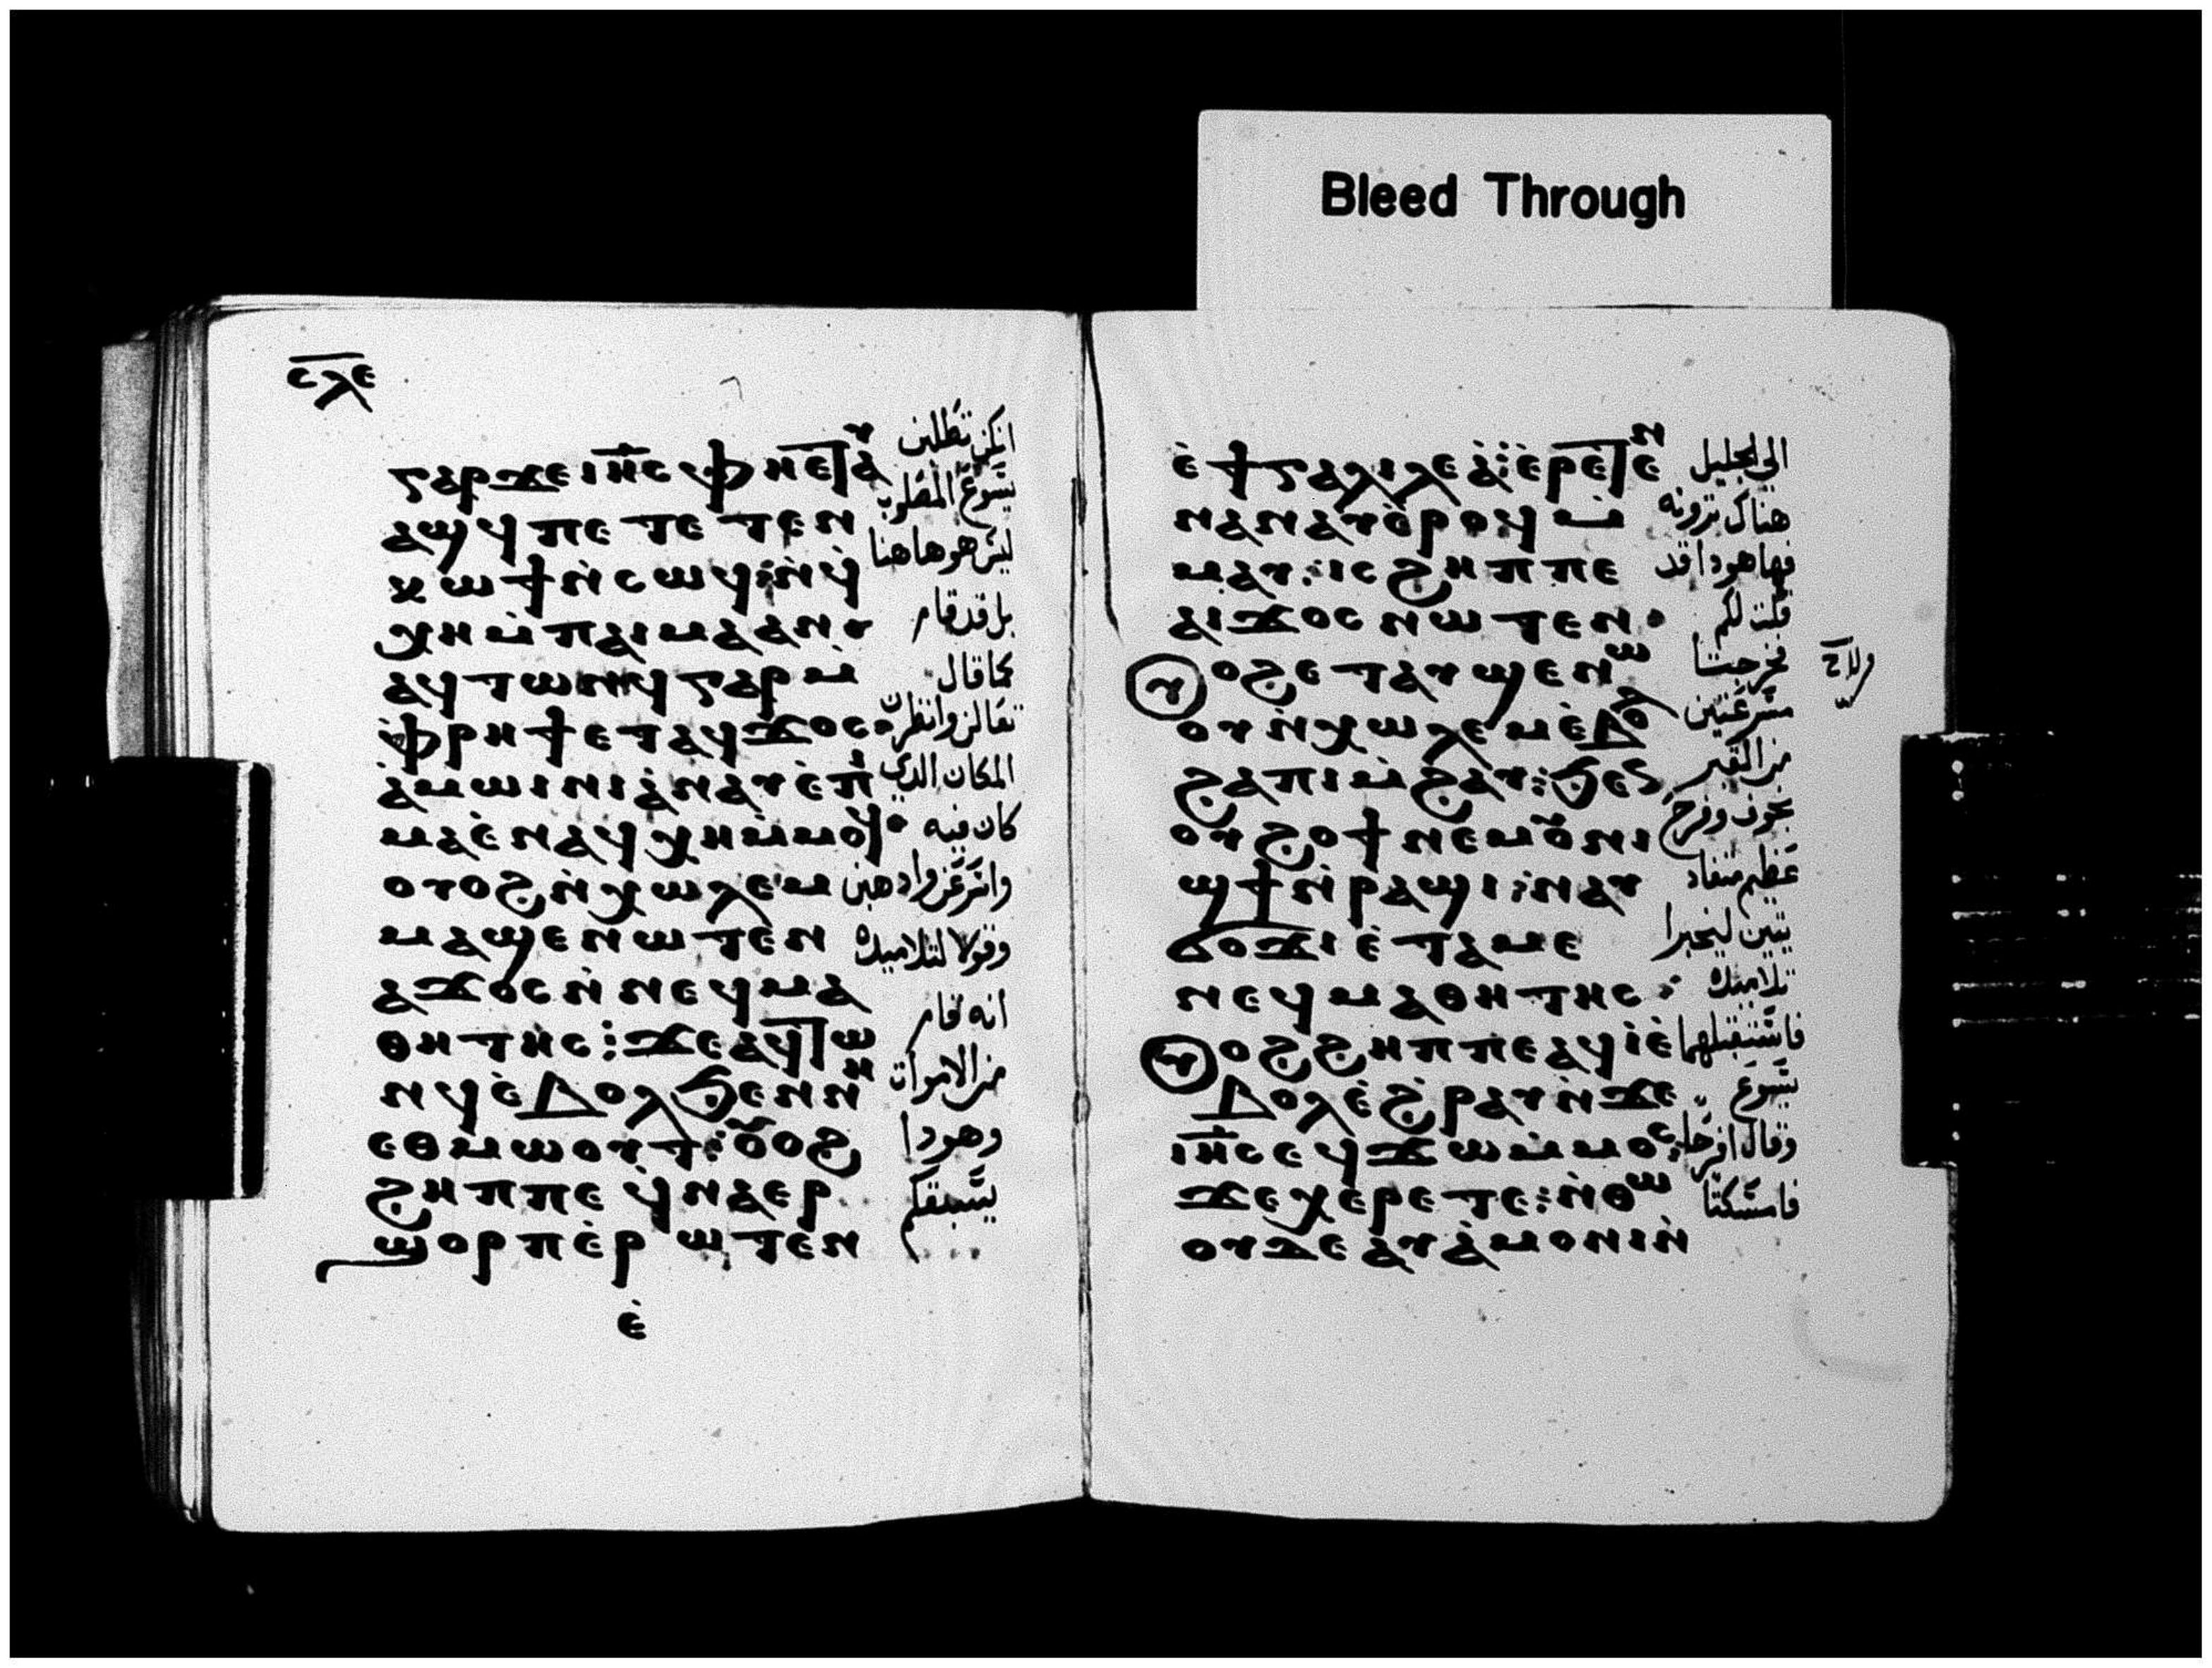 Bleed Through
ⲥⲗⲉ
ⲅⲁⲣ ϫⲉ ⲓⲏⲥ ⲫⲏ ⲉⲧⲁⲩ
ⲁϣϥ ⲡⲉⲧⲉⲧⲉⲛ
ⲕⲱϯ ⲛ̇ⲥⲱϥ ⲛ̇ϥ̇
ⲭⲏ ⲙ̇ⲡⲁⲓⲙⲁ ⲁⲛ
ⲁϥⲧⲱⲛϥ ⲅⲁⲣ ⲙ̇
ⲫⲣⲏϯ ⲉⲧⲁϥϫⲟⲥ
ⲁ̇ⲙⲱⲓⲛⲓ ⲁ̇ⲛⲁⲩ ⲉ̇ⲡⲓ
ⲙⲁ ⲉ̇ⲛⲁϥⲭⲏ ⲙ̇ⲙⲟϥ
ⲟⲩⲟϩ ⲛ̇ⲭⲱⲗⲉⲙ
ⲙⲁϣⲉⲛⲱⲧⲉⲛ
ⲁϫⲟⲥ ⲛ̇ⲛⲉϥⲙⲁ
ⲑⲏⲧⲏⲥ ϫⲉ ⲁϥⲧⲱ
ⲛϥ ⲉ̇ⲃⲟⲗ ϧⲉⲛ ⲛⲏ
ⲉⲑⲙⲱⲟⲩⲧ ⲟⲩⲟϩ
ϩⲏⲡⲡⲉ ϥ̇ⲛⲁⲉⲣ
ϣⲟⲣⲡ ⲉ̇ⲣⲱⲧⲉⲛ
ⲉ̇
انكن تطلبن
يسوع المصلوب
ليس هو هاهنا
بل قد قام
كما قال
تعالن وانظرن
المكان الذي
كان فيه
واسرعن واذهبن
وقولا لتلاميذه
انه قام
من الاموات
وهوذا
يسبقكم
ⲉ̇ϯⲅⲁⲗⲓⲗⲉⲁ̇ ⲉ̇ⲣⲉⲧⲉⲛ
ⲛⲁⲛⲁⲩ ⲉ̇ⲣⲟϥ ⲙ̇
ⲙⲁⲩ ⲓⲥϩⲏⲡⲡⲉ
ⲁⲓϫⲟⲥ ⲛⲱⲧⲉⲛ
ⲟϩ ⲉⲧⲁⲩϣⲉⲛⲱ
ⲟⲩ ⲛ̇ⲭⲱⲗⲉⲙ ⲉ̇ⲃⲟⲗ
ϩⲁ ⲡⲓⲙ̇ϩⲁⲩ ϧⲉⲛ
ⲟⲩϩⲟϯ ⲛⲉⲙ ⲟⲩⲛⲓ
ϣϯ ⲛ̇ⲣⲁϣⲓ ⲛⲁⲩ
ϭⲟϫⲓ ⲉ̇ⲧⲁⲙⲉ
ⲛⲉϥⲙⲁⲑⲏⲧⲏⲥ
ⲟϩ ϩⲏⲡⲡⲉ ⲁϥⲓ̇ ⲉ̇
ⲃⲟⲗ ⲉ̇ϩⲣⲁⲩ ⲛ̇ϫⲉ
ⲓⲏⲥ ⲉϥϫⲱ ⲙ̇ⲙⲟⲥ
ϫⲉ ⲭⲉⲣⲉⲧⲉ ⲛ̇ⲑⲱ
ⲟⲩ ⲇⲉ ⲁⲩⲁ̇ⲙⲟⲛⲓ ⲛ̇
الى الجليل
هناك ترونه
فها هوذا قد
قلت لكم
فخرجتا
مسرعتين
من القبر
بخوف وفرح
عظيم
ليخبرا
تلاميذه
فاستقبلهما
يسوع
وقال افرحا
فامسكتا